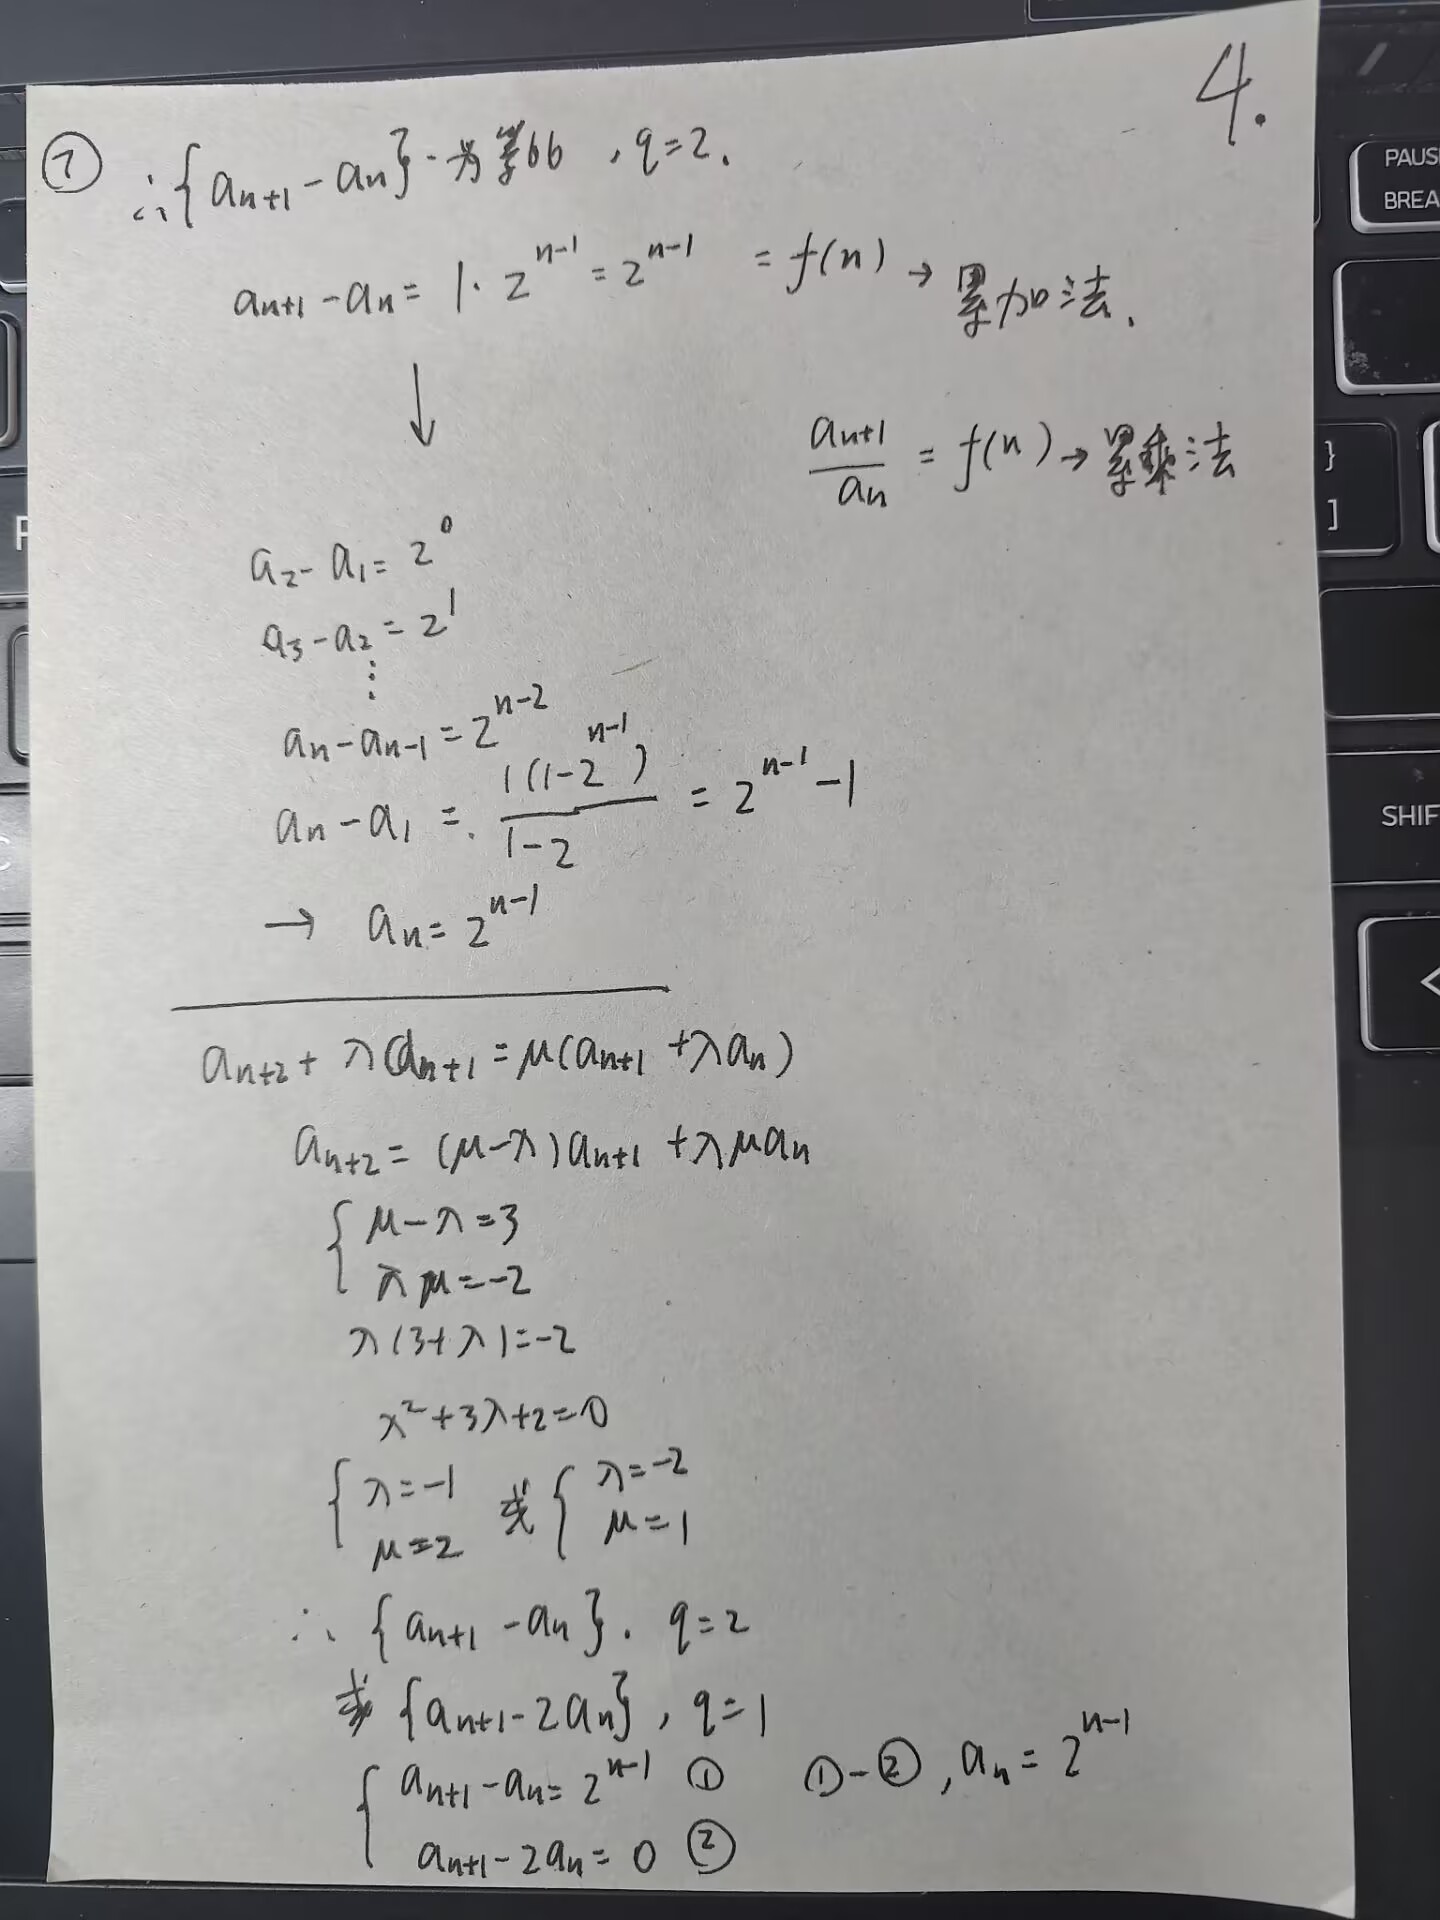 4.
⑦ ∴{aₙ₊₁-aₙ}·为等比,q=2.
aₙ₊₁-aₙ=1·2ⁿ⁻¹=2ⁿ⁻¹ =f(n)→累加法.
↓
aₙ₊₁/aₙ=f(n)→累乘法
a₂-a₁=2⁰
a₃-a₂=2¹
⋮
aₙ-aₙ₋₁=2ⁿ⁻²
aₙ-a₁=1(1-2ⁿ⁻¹)/(1-2)=2ⁿ⁻¹-1
→ aₙ=2ⁿ⁻¹
aₙ₊₂+λaₙ₊₁=μ(aₙ₊₁+λaₙ)
aₙ₊₂=(μ-λ)aₙ₊₁+λμaₙ
{μ-λ=3
λμ=-2
λ(3+λ)=-2
λ²+3λ+2=0
{λ=-1 或 {λ=-2
μ=2 μ=1
∴{aₙ₊₁-aₙ}.q=2
或{aₙ₊₁-2aₙ},q=1
{aₙ₊₁-aₙ=2ⁿ⁻¹ ① ①-②,aₙ=2ⁿ⁻¹
aₙ₊₁-2aₙ=0 ②
PAUS
BREA
}
]
SHIF
<